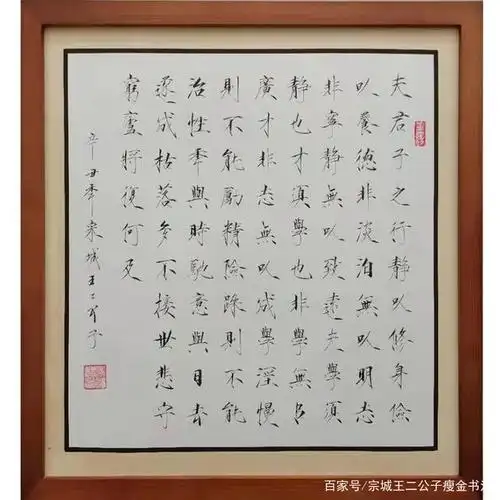 夫君子之行静以修身儉
以養德非淡泊無以明志
非寧静無以致遠夫學須
静也才須學也非學無以
廣才非志無以成學淫慢
則不能勵精險躁則不能
治性年與時馳意與日去
遂成枯落多不接世悲守
窮廬將復何及
辛丑年宗城王二公子
百家号/宗城王二公子瘦金书